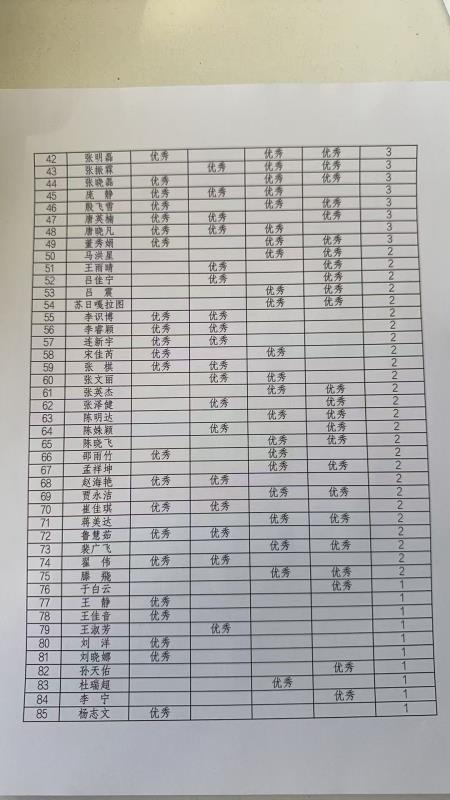 42 张明磊 优秀 优秀 优秀 3
43 张振霖 优秀 优秀 优秀 3
44 张晓磊 优秀 优秀 优秀 3
45 庞 静 优秀 优秀 优秀 3
46 殷飞雪 优秀 优秀 优秀 3
47 唐英楠 优秀 优秀 优秀 3
48 唐晓凡 优秀 优秀 优秀 3
49 董秀娟 优秀 优秀 优秀 3
50 马洪星 优秀 优秀 2
51 王雨晴 优秀 优秀 2
52 吕佳宁 优秀 优秀 2
53 吕 震 优秀 优秀 2
54 苏日嘎拉图 优秀 优秀 2
55 李识博 优秀 优秀 2
56 李睿颖 优秀 优秀 2
57 连新宇 优秀 优秀 2
58 宋佳芮 优秀 优秀 2
59 张 棋 优秀 优秀 2
60 张文丽 优秀 优秀 2
61 张英杰 优秀 优秀 2
62 张泽健 优秀 优秀 2
63 陈明达 优秀 优秀 2
64 陈姝颖 优秀 优秀 2
65 陈晓飞 优秀 优秀 2
66 邵雨竹 优秀 优秀 2
67 孟祥坤 优秀 优秀 2
68 赵海艳 优秀 优秀 2
69 贾永洁 优秀 优秀 2
70 崔佳琪 优秀 优秀 2
71 蒋美达 优秀 优秀 2
72 鲁慧茹 优秀 优秀 2
73 裴广飞 优秀 优秀 2
74 翟 伟 优秀 优秀 2
75 滕 飛 优秀 优秀 2
76 于白云 优秀 1
77 王 静 优秀 1
78 王佳音 优秀 1
79 王淑芳 优秀 1
80 刘 洋 优秀 1
81 刘晓娜 优秀 1
82 孙天佑 优秀 1
83 杜瑞超 优秀 1
84 李 宁 优秀 1
85 杨志文 优秀 1